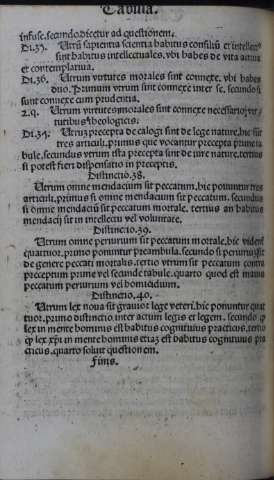 Tabula.
infuse. secundo dicetur ad questionem.
Di.35. Utrū sapientia scientia habitus consiliū et intellectꝰ
sint habitus intellectuales. vbi habes de vita actiua
et contemplatiua.
Di.36. Utrum virtutes morales sint connexe. vbi habes
duo. Primum vtrum sint connexe inter se. secundo si
sunt connexe cum prudentia.
2.q. Utrum virtutes morales sint connexe necessario
tutibus theologicis.
Di.37. Utrum precepta decalogi sint de lege nature, hic sūt
tres articuli. primus que vocantur precepta prime ta
bule. secundus vtrum ista precepta sint de iure nature. tertius
si potest fieri dispensatio in preceptis.
Distinctio.38.
Utrum omne mendacium sit peccatum. hic ponuntur tres
articuli. primus si omne mendacium sit peccatum. secundus
si omne mendaciū sit peccatum mortale. tertius an habitus
mendacij sit in intellectu vel voluntate.
Distinctio.39.
Utrum omne periurium sit peccatum mortale. hic videnť
quattuor. primo ponuntur preambula. secundo si periuriū sit
de genere peccati mortalis. tertio vtrum sit peccatum contra
preceptum prime vel secunde tabule. quarto quod est maius
peccatum periurum vel homicidium.
Distinctio.40.
Utrum lex noua sit grauior lege veteri. hic ponuntur quat
tuor. primo distinctio inter actum legis et legem. secundo ꝙ
lex in mente hominis est habitus cognitiuus practicus. tertio
ꝙ lex xp̄i in mente hominis etiā est habitus cognitiuus pra
cticus. quarto soluit questionem.
Finis.